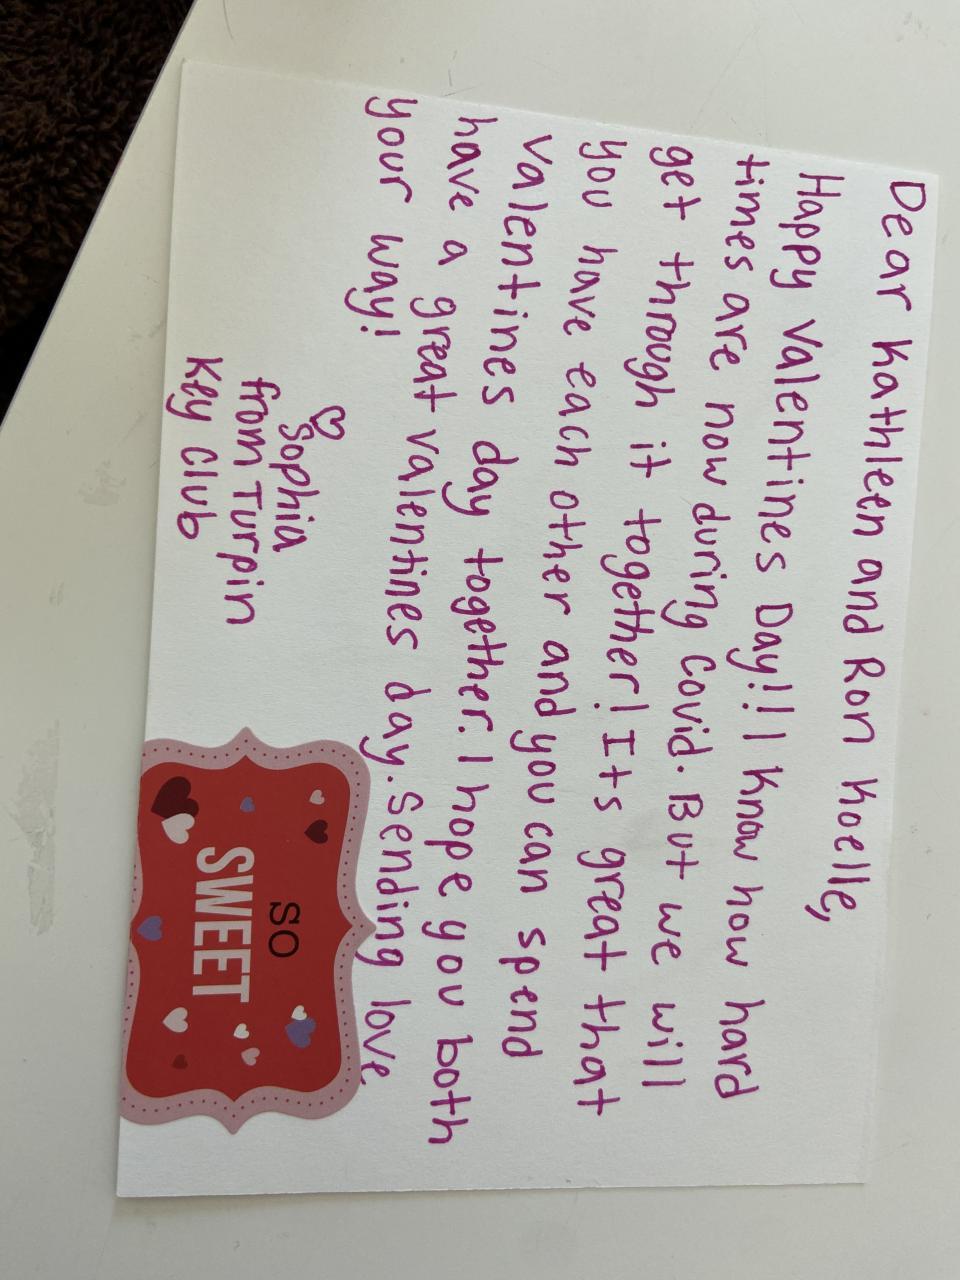 Dear Kathleen and Ron Koelle,
Happy Valentines Day!! I know how hard
times are now during Covid. But we will
get through it together! Its great that
you have each other and you can spend
valentines day together. I hope you both
have a great valentines day. Sending love
your way!
♡ Sophia
from Turpin
Key Club
SO
SWEET